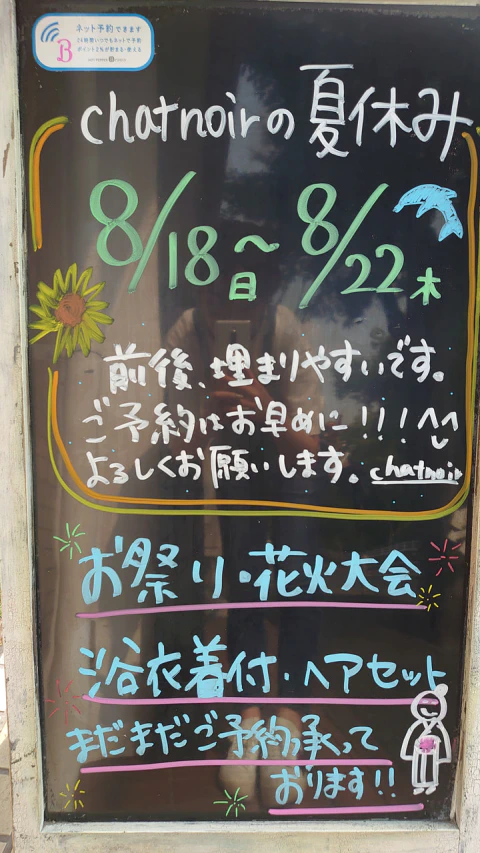 ネット予約できます
24時間いつでもネットで予約
ポイント2%が貯まる・使える
B
chatnoirの夏休み
8/18日〜8/22木
前後、埋まりやすいです。
ご予約はお早めに!!!^^
よろしくお願いします。chatnoir
お祭り・花火大会
浴衣着付・ヘアセット
まだまだご予約承って
おります!!